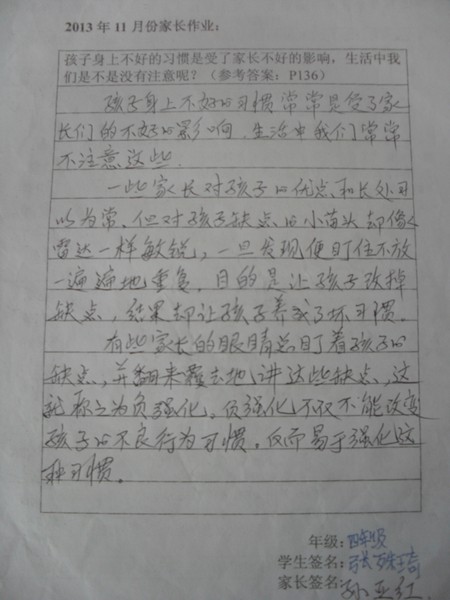 2013 年 11 月份家长作业：
孩子身上不好的习惯是受了家长不好的影响，生活中我
们是不是没有注意呢？（参考答案：P136）
孩子身上不好的习惯常常是受了家
长们的不好的影响，生活中我们常常
不注意这些.
一些家长对孩子的优点和长处习
以为常，但对孩子缺点的小苗头却像
雷达一样敏锐，一旦发现便盯住不放
一遍遍地重复，目的是让孩子改掉
缺点，结果却让孩子养成了坏习惯。
有些家长的眼睛总盯着孩子的
缺点，并翻来覆去地讲这些缺点，这
就称之为负强化。负强化不仅不能改变
孩子的不良行为习惯。反而易于强化这
种习惯。
年级：四年级
学生签名：张 琦
家长签名：孙亚红